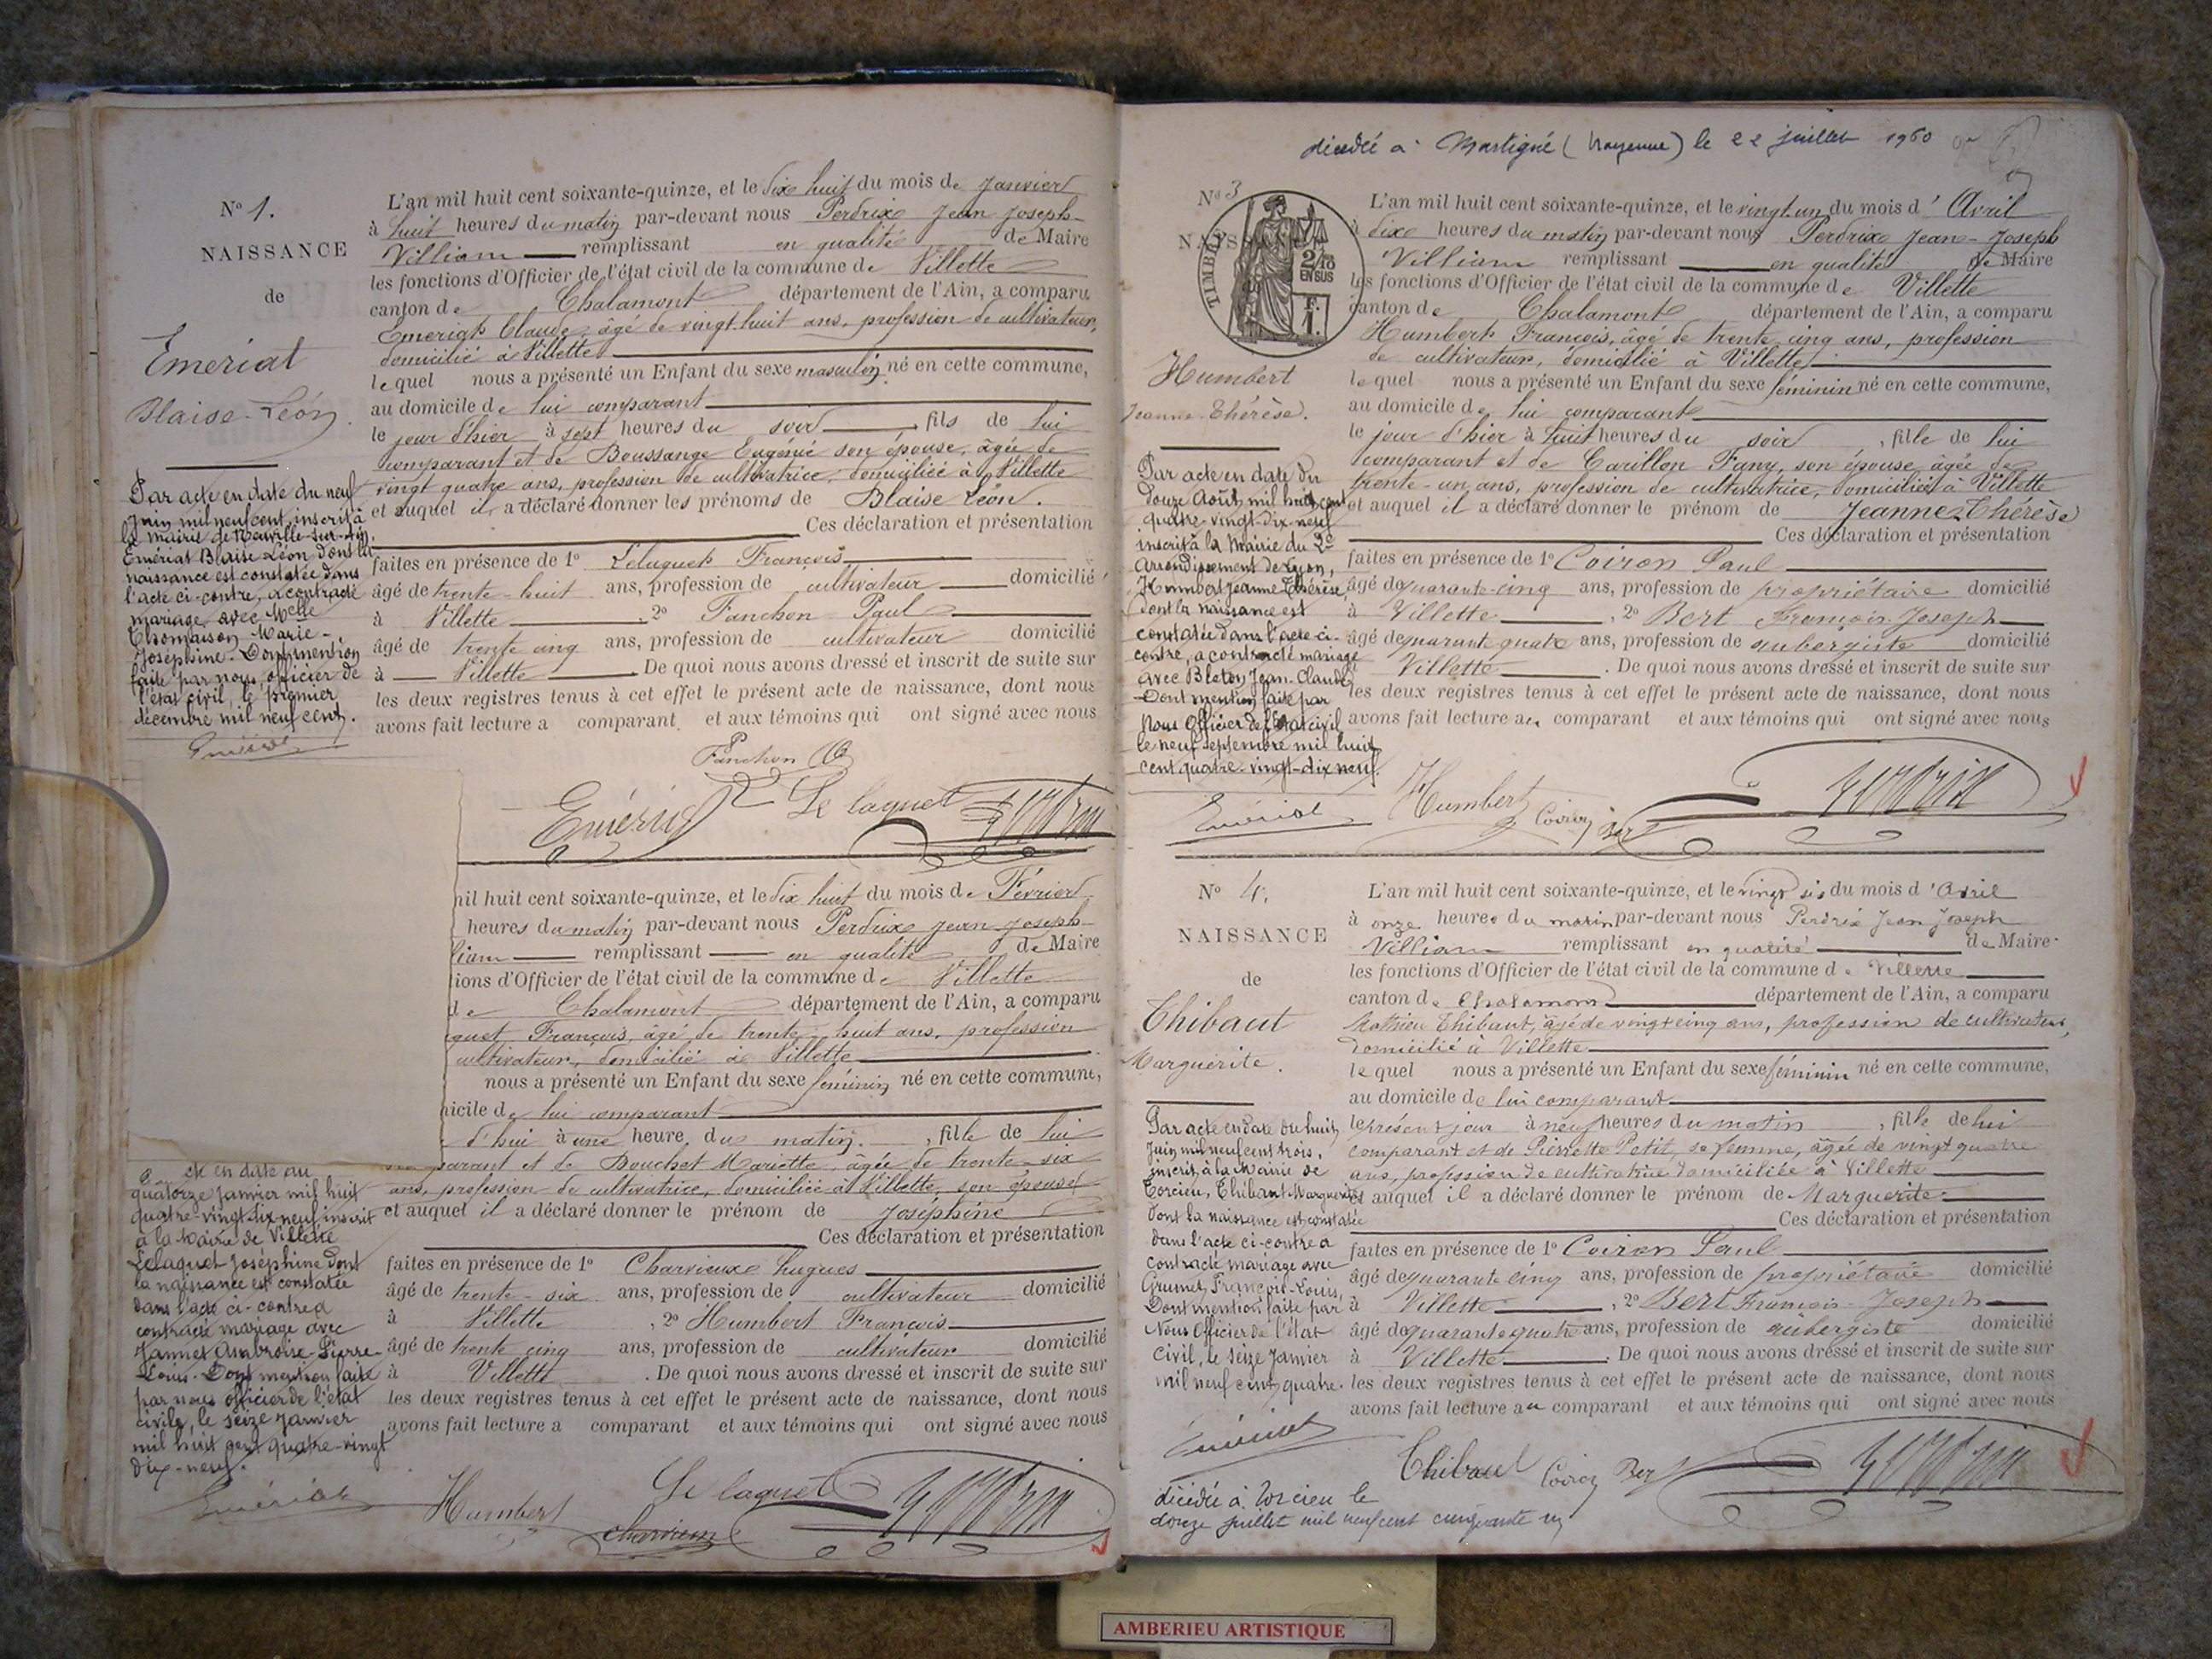 N° 1.
NAISSANCE
de
Emeriat
Blaise-Léon.
Par acte en date du neuf
Juin mil neuf cent, inscrit à
la mairie de Neuville-sur-Ain,
Emériat Blaise Léon dont la
naissance est constatée dans
l'acte ci-contre, a contracté
mariage avec Melle
Thomasson Marie-
Joséphine. Dont mention
faite par nous, officier de
l'état civil, le premier
décembre mil neuf cent.
Emériat
L'an mil huit cent soixante-quinze, et le dix huit du mois de Janvier
à huit heures du matin par-devant nous Perdrix Jean Joseph
Villiam remplissant en qualité de Maire
les fonctions d'Officier de l'état civil de la commune de Villette
canton de Chalamont département de l'Ain, a comparu
Emeriat Claude, âgé de vingt-huit ans, profession de cultivateur,
domicilié à Villette
lequel nous a présenté un Enfant du sexe masculin né en cette commune,
au domicile de lui comparant
le jour d'hier à sept heures du soir, fils de lui
comparant et de Boussange Eugénie son épouse, âgée de
vingt quatre ans, profession de cultivatrice, domiciliée à Villette
et auquel il a déclaré donner les prénoms de Blaise Léon.
Ces déclaration et présentation
faites en présence de 1° Lelaguet François
âgé de trente-huit ans, profession de cultivateur domicilié
à Villette, 2° Fanchon Paul
âgé de trente cinq ans, profession de cultivateur domicilié
à Villette. De quoi nous avons dressé et inscrit de suite sur
les deux registres tenus à cet effet le présent acte de naissance, dont nous
avons fait lecture a comparant et aux témoins qui ont signé avec nous
P Fanchon
Emériat Le laguet Perdrix
mil huit cent soixante-quinze, et le dix huit du mois de Février
heures du matin par-devant nous Perdrix Jean Joseph
liam remplissant en qualité de Maire
tions d'Officier de l'état civil de la commune de Villette
de Chalamont département de l'Ain, a comparu
guet François, âgé de trente-huit ans, profession
cultivateur, domicilié à Villette
nous a présenté un Enfant du sexe féminin né en cette commune,
icile de lui comparant
d'hui à une heure du matin, fille de lui
parant et de Bouchet Mariette, âgée de trente-six
ans, profession de cultivatrice, domiciliée à Villette, son épouse
et auquel il a déclaré donner le prénom de Joséphine
Ces déclaration et présentation
faites en présence de 1° Charvieux hugues
âgé de trente-six ans, profession de cultivateur domicilié
à Villette, 2° Humbert François
âgé de trente cinq ans, profession de cultivateur domicilié
à Villette. De quoi nous avons dressé et inscrit de suite sur
les deux registres tenus à cet effet le présent acte de naissance, dont nous
avons fait lecture a comparant et aux témoins qui ont signé avec nous
te en date du
quatorze Janvier mil huit
quatre-vingt dix-neuf, inscrit
à la Mairie de Villette
Lelaguet Joséphine dont
la naissance est constatée
dans l'acte ci-contre a
contracté mariage avec
Jannet Ambroise-Pierre-
Louis. Dont mention faite
par nous officier de l'état
civil, le seize Janvier
mil huit cent quatre-vingt
dix-neuf.
Emériat
Humbert Le laguet Perdrix
charvieux
décédée à Martigné (Mayenne) le 22 juillet 1960
N° 3
NAISSANCE
TIMBRE
2/10
EN SUS
F.
1.
Humbert
Jeanne-Thérèse.
Par acte en date du
douze Août mil huit cent
quatre-vingt-dix-neuf
inscrit à la Mairie du 2e
Arrondissement de Lyon,
Humbert Jeanne Thérèse,
dont la naissance est
constatée dans l'acte ci-
contre, a contracté mariage
avec Bleton Jean-Claude
Dont mention faite par
Nous Officier de l'état civil
le neuf Septembre mil huit
cent quatre-vingt-dix neuf.
Emériat
L'an mil huit cent soixante-quinze, et le vingt-un du mois d'Avril
à dix heures du matin par-devant nous Perdrix Jean-Joseph
Villiam remplissant en qualité de Maire
les fonctions d'Officier de l'état civil de la commune de Villette
canton de Chalamont département de l'Ain, a comparu
Humbert François, âgé de trente cinq ans, profession
de cultivateur, domicilié à Villette
lequel nous a présenté un Enfant du sexe féminin né en cette commune,
au domicile de lui comparant
le jour d'hier à huit heures du soir, fille de lui
comparant et de Carillon Fany, son épouse, âgée de
trente-un ans, profession de cultivatrice, domiciliée à Villette
et auquel il a déclaré donner le prénom de Jeanne-Thérèse
Ces déclaration et présentation
faites en présence de 1° Coiron Paul
âgé de quarante-cinq ans, profession de propriétaire domicilié
à Villette, 2° Bert François-Joseph
âgé de quarant quatre ans, profession de aubergiste domicilié
Villette. De quoi nous avons dressé et inscrit de suite sur
les deux registres tenus à cet effet le présent acte de naissance, dont nous
avons fait lecture au comparant et aux témoins qui ont signé avec nous
Humbert Coiron Bert Perdrix
N° 4.
NAISSANCE
de
Thibaut
Marguerite.
Par acte en date du huit
Juin mil neuf cent trois,
inscrit à la Mairie de
Torcieu, Thibaut Marguerite
dont la naissance est constatée
dans l'acte ci-contre a
contracté mariage avec
Grumet François-Louis,
Dont mention faite par
Nous Officier de l'état
civil, le seize Janvier
mil neuf cent quatre.
Emériat
L'an mil huit cent soixante-quinze, et le vingt six du mois d'Avril
à onze heures du matin par-devant nous Perdrix Jean Joseph
Villiam remplissant en qualité de Maire
les fonctions d'Officier de l'état civil de la commune de Villette
canton de Chalamont département de l'Ain, a comparu
Mathieu Thibaut, âgé de vingt cinq ans, profession de cultivateur,
domicilié à Villette
lequel nous a présenté un Enfant du sexe féminin né en cette commune,
au domicile de lui comparant
le présent jour à neuf heures du matin, fille de lui
comparant et de Pierrette Petit, sa femme, âgée de vingt quatre
ans, profession de cultivatrice domiciliée à Villette
et auquel il a déclaré donner le prénom de Marguerite
Ces déclaration et présentation
faites en présence de 1° Coiron Paul
âgé de quarante cinq ans, profession de propriétaire domicilié
à Villette, 2° Bert François-Joseph
âgé de quarante quatre ans, profession de aubergiste domicilié
à Villette. De quoi nous avons dressé et inscrit de suite sur
les deux registres tenus à cet effet le présent acte de naissance, dont nous
avons fait lecture au comparant et aux témoins qui ont signé avec nous
Thibaut Coiron Bert Perdrix
décédée à Torcieu le
douze juillet mil neuf cent cinquante un
AMBERIEU ARTISTIQUE